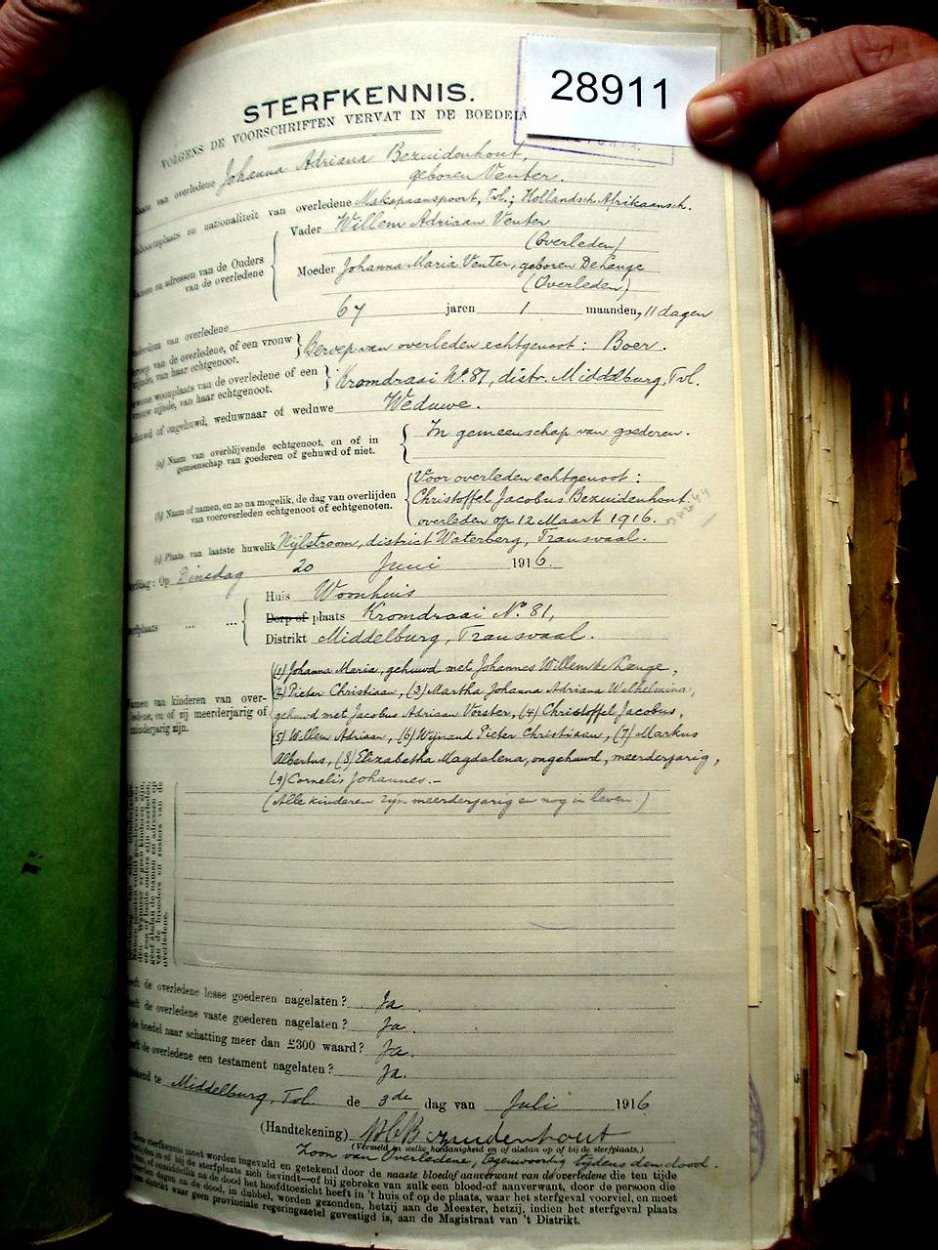 28911
STERFKENNIS.
VOLGENS DE VOORSCHRIFTEN VERVAT IN DE
van overledene Johanna Adriana Bezuidenhout,
geboren Venter.
en nationaliteit van overledene Makapaanspoort, Tvl.; Hollandsch Afrikaansch.
en adressen van de Ouders van de overledene
Vader Willem Adriaan Venter
(Overleden)
Moeder Johanna Maria Venter, geboren De Lange
(Overleden)
van overledene 67 jaren 1 maanden, 11 dagen
van de overledene, of een vrouw zijnde, van haar echtgenoot. Beroep van overleden echtgenoot: Boer.
woonplaats van de overledene of een vrouw zijnde, van haar echtgenoot. Kromdraai No. 81, distr. Middelburg, Tvl.
of ongehuwd, weduwnaar of weduwe Weduwe.
(a) Naam van overblijvende echtgenoot, en of in gemeenschap van goederen of gehuwd of niet. In gemeenschap van goederen.
(b) Naam of namen, en zo na mogelijk, de dag van overlijden van vooroverleden echtgenoot of echtgenoten.
Vooroverleden echtgenoot:
Christoffel Jacobus Bezuidenhout.
overleden op 12 Maart 1916.
(c) Plaats van laatste huwelik Nijlstroom, district Waterberg, Transvaal.
Op Dinsdag 20 Junie 1916.
Huis Woonhuis
Dorp of plaats Kromdraai No. 81,
Distrikt Middelburg, Transvaal.
Namen van kinderen van overledene, en of zij meerderjarig of minderjarig zijn.
(1) Johanna Maria, gehuwd met Johannes Willem de Lange,
(2) Pieter Christiaan, (3) Martha Johanna Adriana Wilhelmina,
gehuwd met Jacobus Adriaan Vorster, (4) Christoffel Jacobus,
(5) Willem Adriaan, (6) Wijnand Pieter Christiaan, (7) Markus
Albertus, (8) Elizabetha Magdalena, ongehuwd, meerderjarig,
(9) Cornelis Johannes.–
(Alle kinderen zijn meerderjarig en nog in leven.)
de overledene losse goederen nagelaten? Ja.
de overledene vaste goederen nagelaten? Ja.
boedel naar schatting meer dan £300 waard? Ja.
de overledene een testament nagelaten? Ja.
te Middelburg, Tvl. de 3de dag van Juli 1916
(Handtekening) Bezuidenhout
(Vermeld in welke hoedanigheid en of alsdan op of bij de sterfplaats.)
Zoon van Overledene, tegenwoordig tijdens den dood.
Deze sterfkennis moet worden ingevuld en getekend door de naaste bloed of aanverwant van de overledene die ten tijde
in of bij de sterfplaats zich bevindt—of bij gebreke van zulk een bloed-of aanverwant, door de persoon die
na de dood het hoofdtoezicht heeft in 't huis of op de plaats, waar het sterfgeval voorviel, en moet
dagen na de dood, in dubbel, worden gezonden, hetzij aan de Meester, hetzij, indien het sterfgeval plaats
distrikt waar geen provinciale regeringszetel gevestigd is, aan de Magistraat van 't Distrikt.